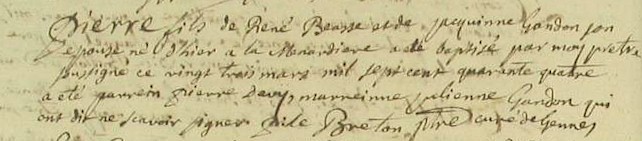 Pierre fils de René Beasse et de jacquinne Gandon son
epouse né d'hier a la Menardiere a eté baptisé par moy pretre
soussigné ce vingt trois mars mil sept cent quarante quatre
a eté parrein pierre Davy marreinne julienne Gandon qui
ont dit ne scavoir signer gile Breton ptre curé de Gennes